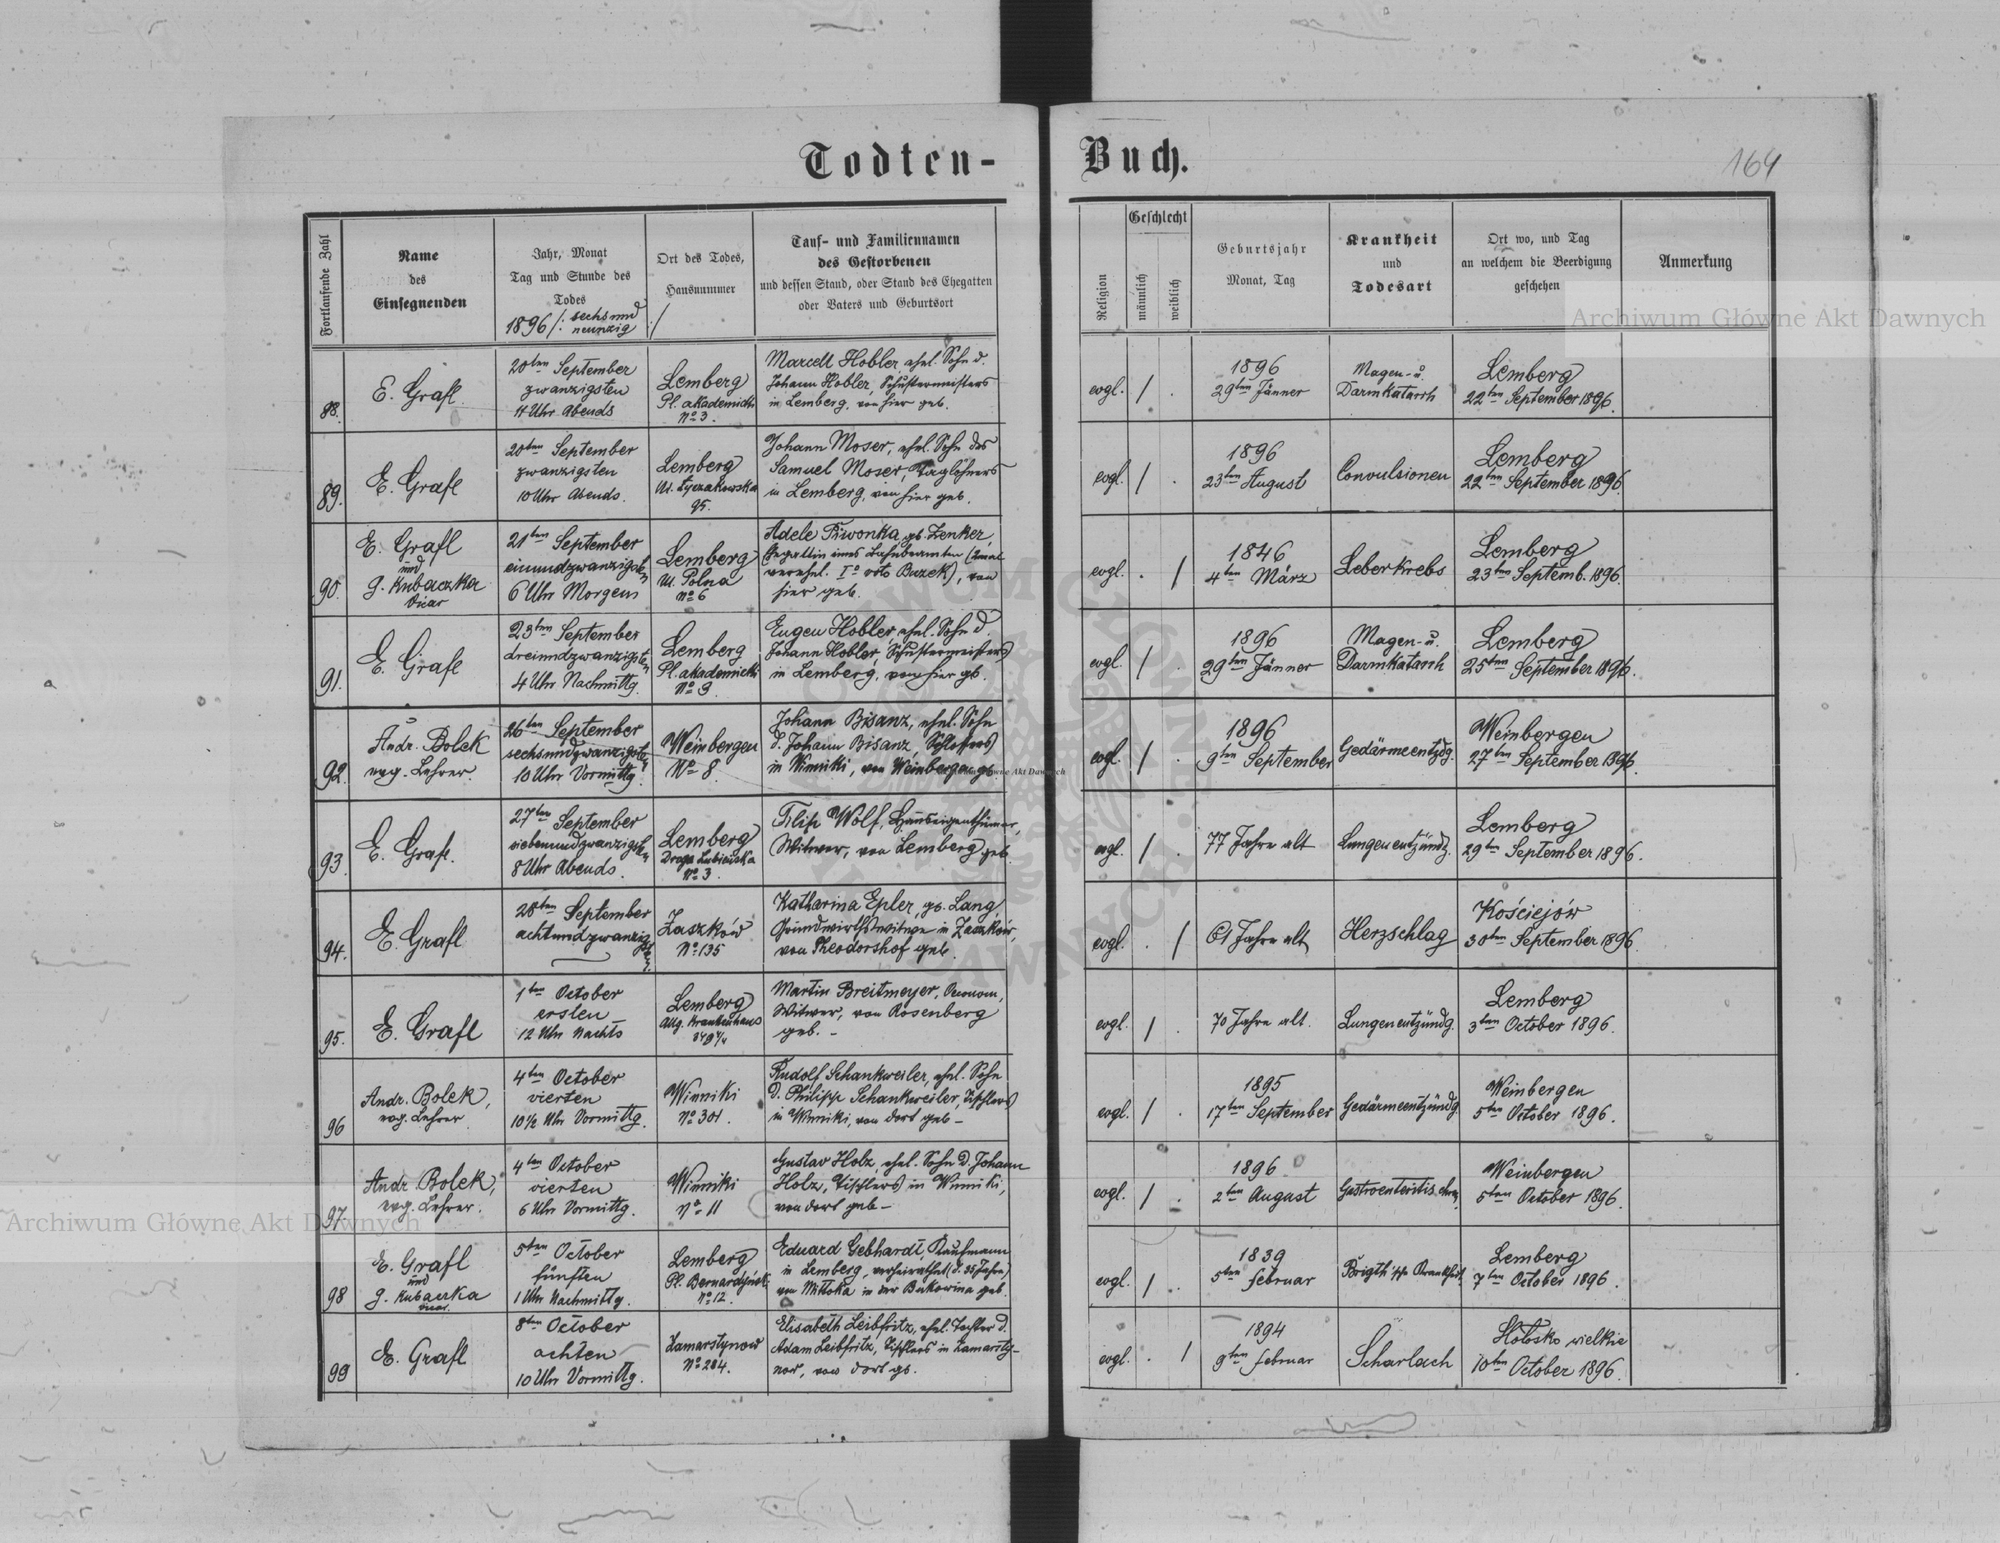 Todten-
Buch.
164
Fortlaufende Zahl
Name
des
Einsegnenden
Jahr, Monat
Tag und Stunde des
Todes
1896 /: sechs und
neunzig :/
Ort des Todes,
Hausnummer
Tauf- und Familiennamen
des Gestorbenen
und dessen Stand, oder Stand des Ehegatten
oder Vaters und Geburtsort
Religion
Geschlecht
männlich
weiblich
Geburtsjahr
Monat, Tag
Krankheit
und
Todesart
Ort wo, und Tag
an welchem die Beerdigung
geschehen
Anmerkung
88.
E. Grafl.
20ten September
zwanzigsten
11 Uhr Abends
Lemberg
Pl. akademicki
No 3.
Marcell Hobler, ehel. Sohn d.
Johann Hobler, Schustermeisters
in Lemberg, von hier geb.
evgl. / .
1896
29ten Jänner
Magen- u.
Darmkatarrh
Lemberg
22ten September 1896.
89.
E. Grafl
20ten September
zwanzigsten
10 Uhr Abends.
Lemberg
Ul. Łyczakowska
95.
Johann Moser, ehel. Sohn des
Samuel Moser, Taglöhners
in Lemberg, von hier geb.
evgl. / .
1896
23ten August
Convulsionen
Lemberg
22ten September 1896.
90.
E. Grafl
und
G. Kubaczka
Vicar
21ten September
einundzwanzigsten
6 Uhr Morgens
Lemberg
Ul. Polna
No 6
Adele Piwonka, gb. Zenker,
Ehegattin eines Bahnbeamten (2mal
verehel. Io voto Buzek), von
hier geb.
evgl. . /
1846
4ten März
Leberkrebs
Lemberg
23ten Septemb. 1896.
91.
E. Grafl
23ten September
dreiundzwanzigsten
4 Uhr Nachmittg.
Lemberg
Pl. akademicki
No 3.
Eugen Hobler, ehel. Sohn d.
Johann Hobler, Schustermeisters
in Lemberg, von hier gb.
evgl. / .
1896
29ten Jänner
Magen- u.
Darmkatarrh
Lemberg
25ten September 1896.
92.
Andr. Bolek
evg. Lehrer.
26ten September
sechsundzwanzigsten
10 Uhr Vormittg.
Weinbergen
No 8.
Johann Bisanz, ehel. Sohn
d. Johann Bisanz, Schlossers
in Winniki, von Weinbergen gb.
evgl. / .
1896
9ten September
Gedärmeentzdg.
Weinbergen
27ten September 1896.
93.
E. Grafl.
27ten September
siebenundzwanzigsten
8 Uhr Abends.
Lemberg
Droga Lubieńska
No 3.
Filip Wolf, Hauseigenthümer,
Witwer, von Lemberg geb.
evgl. / .
77 Jahre alt
Lungenentzündg.
Lemberg
29ten September 1896.
94.
E. Grafl
28ten September
achtundzwanzigsten
Zaszków
No 135
Katharina Epler, gb. Lang,
Grundwirthswitwe in Zaszków,
von Theodorshof geb.
evgl. . /
61 Jahre alt
Herzschlag
Kościejów
30ten September 1896
95.
E. Grafl
1ten October
ersten
12 Uhr Nachts
Lemberg
Allg. Krankenhaus
Martin Breitmeyer, Oeconom,
Witwer, von Rosenberg
geb. -
evgl. / .
70 Jahre alt.
Lungenentzündg.
Lemberg
3ten October 1896.
96
Andr. Bolek,
evg. Lehrer
4ten October
vierten
10½ Uhr Vormittg.
Winniki
No 301.
Rudolf Schankweiler, ehel. Sohn
d. Philipp Schankweiler, Tischlers
in Winniki, von dort geb -
evgl. / .
1895
17ten September
Gedärmeentzündg.
Weinbergen
5ten October 1896.
97
Andr. Bolek,
evg. Lehrer.
4ten October
vierten
6 Uhr Vormittg.
Winniki
No 11
Gustav Holz, ehel. Sohn d. Johann
Holz, Tischlers in Winniki,
von dort geb -
evgl. / .
1896
2ten August
Gastroenteritis chron.
Weinbergen
5ten October 1896.
98
E. Grafl
und
G. Kubaczka
vicar.
5ten October
fünften
1 Uhr Nachmittg.
Lemberg
Pl. Bernardyński
No 12.
Eduard Gebhardt, Kaufmann
in Lemberg, verheirathet (d. 35 Jahre)
von Mittoka in der Bukowina geb.
evgl. / .
1839
5ten Februar
Brigth'sche Krankheit
Lemberg
7ten October 1896.
99
E. Grafl
8ten October
achten
10 Uhr Vormittg.
Zamarstynow
No 284.
Elisabeth Leibfritz, ehel. Tochter d.
Adam Leibfritz, Tischlers in Zamarsty-
now, von dort gb.
evgl. . /
1894
9ten Februar
Scharlach
Hołosko wielkie
10ten October 1896.
Archiwum Główne Akt Dawnych
Archiwum Główne Akt Dawnych